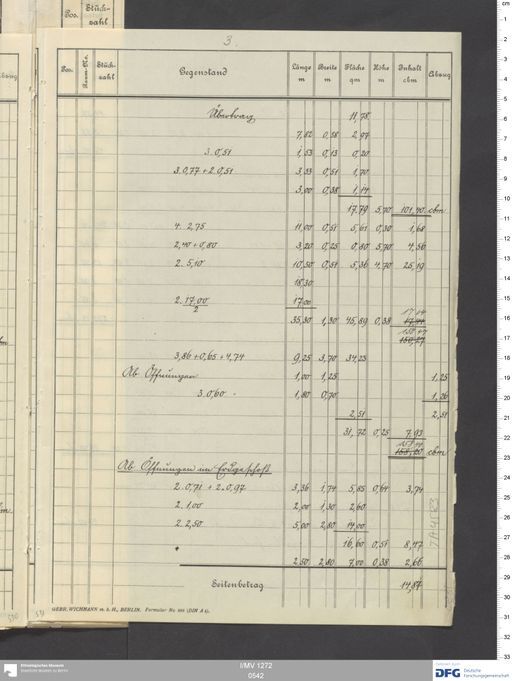 Pos.
Stück-
zahl
3.
Pos.
Raum-No.
Stück-
zahl
Gegenstand
Länge
m
Breite
m
Fläche
qm
Höhe
m
Inhalt
cbm
Abzug
Übertrag 11,78
7,82 0,38 2,97
3. 0,51 1,53 0,13 0,20
3. 0,77 + 2. 0,51 3,33 0,51 1,70
3,00 0,38 1,14
17,79 5,70 101,40 cbm
4. 2,75 11,00 0,51 5,61 0,30 1,68
2,40 + 0,80 3,20 0,25 0,80 5,70 4,56
2. 5,10 10,50 0,51 5,36 4,70 25,19
18,30
2. 17,00 / 2 17,00
17,44
35,30 1,30 45,89 0,38
150,27
3,86 + 0,65 + 4,74 9,25 3,70 34,23
Ab Öffnungen 1,00 1,25 1,25
3. 0,60 1,80 0,70 1,26
2,51 2,51
31,72 0,25 7,93
cbm
Ab Öffnungen im Erdgeschoß
2. 0,71 + 2. 0,97 3,36 1,74 5,85 0,64 3,74
2. 1,00 2,00 1,30 2,60
2. 2,50 5,00 2,80 14,00
16,60 0,51 8,47
2,50 2,80 7,00 0,38 2,66
Seitenbetrag 14,87
GEBR. WICHMANN m. b. H., BERLIN. Formular No. 808 (DIN A 4).
I/MV 1272
0542
Ethnologisches Museum
Staatliche Museen zu Berlin
DFG Deutsche
Forschungsgemeinschaft